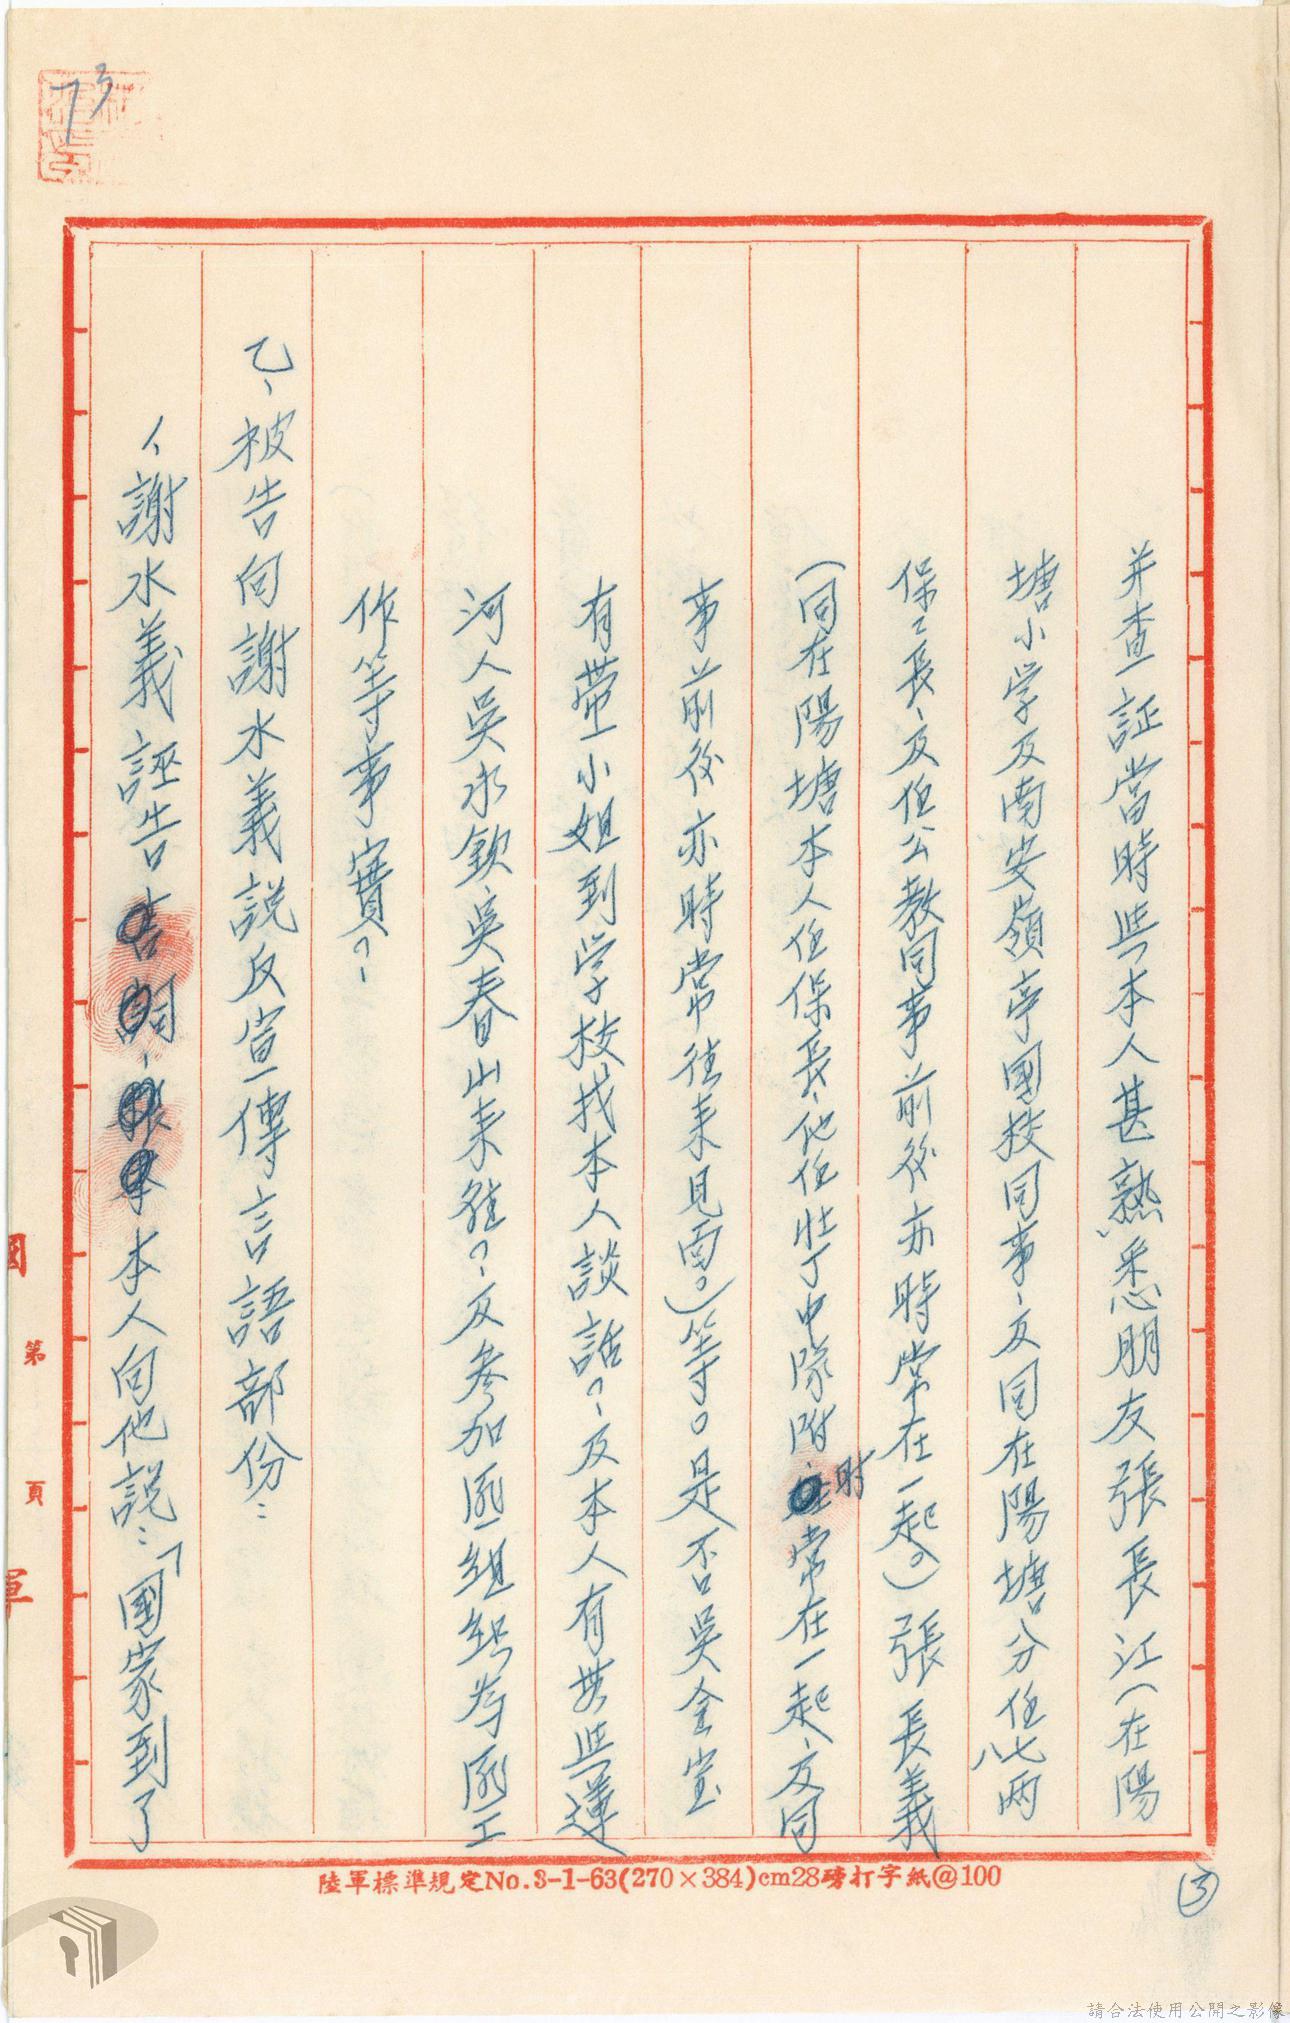 73
并查証當時些本人甚熟悉朋友張長江(在陽
塘小学及南安嶺亭國校同事、又同在陽塘分任七八兩
保々長、又任公教同事前後亦時常在一起。)張長義
(同在陽塘本人任保長、他任壯丁中隊附、時常在一起、又同
事前後亦時常往来見面。)等。是否吳金宝
有帶小姐到学校找本人談話?、及本人有與些蓮
河人吳水欽、吳春山来往?、及参加匪組織為匪工
作等事實?、
乙、被告向謝水義說反宣傳言語部份:
1、謝水義誣告本人向他說:「國家到了
國 第 頁 軍
陸軍標準規定No.3-1-63(270×384)cm28磅打字紙@100
③
請合法使用公開之影像